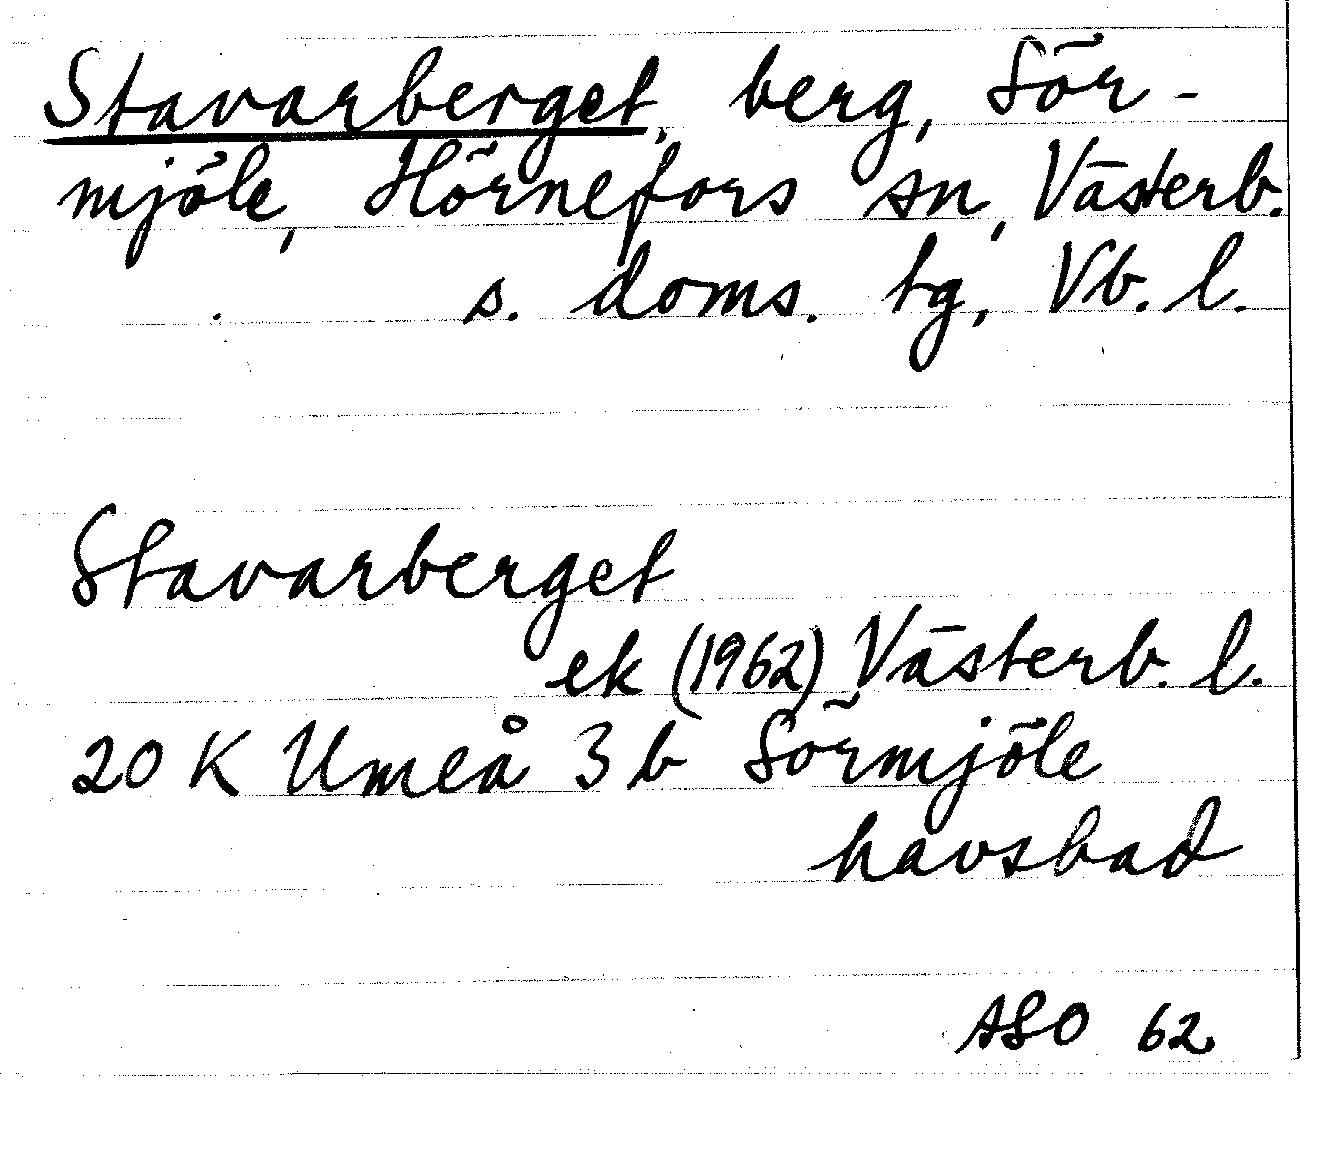 Stavarberget, berg, Sör-
mjöle, Hörnefors sn, Västerb.
s. doms. tg, Vb. l.
Stavarberget
ek (1962) Västerb. l.
20 K Umeå 3 b Sörmjöle
havsbad
ASO 62